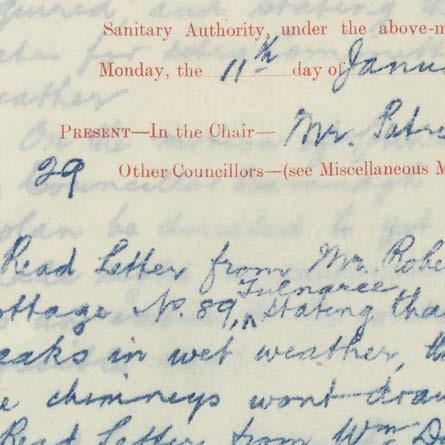 Sanitary Authority, under the above-m
Monday, the 11th day of Janu
PRESENT—In the Chair— Mr. Patri
29 Other Councillors—(see Miscellaneous M
Read Letter from Mr. Robe
ottage No. 89, Tulnaree, stating tha
eaks in wet weather, th
e chimneys wont draw
Read Letter from Wm D